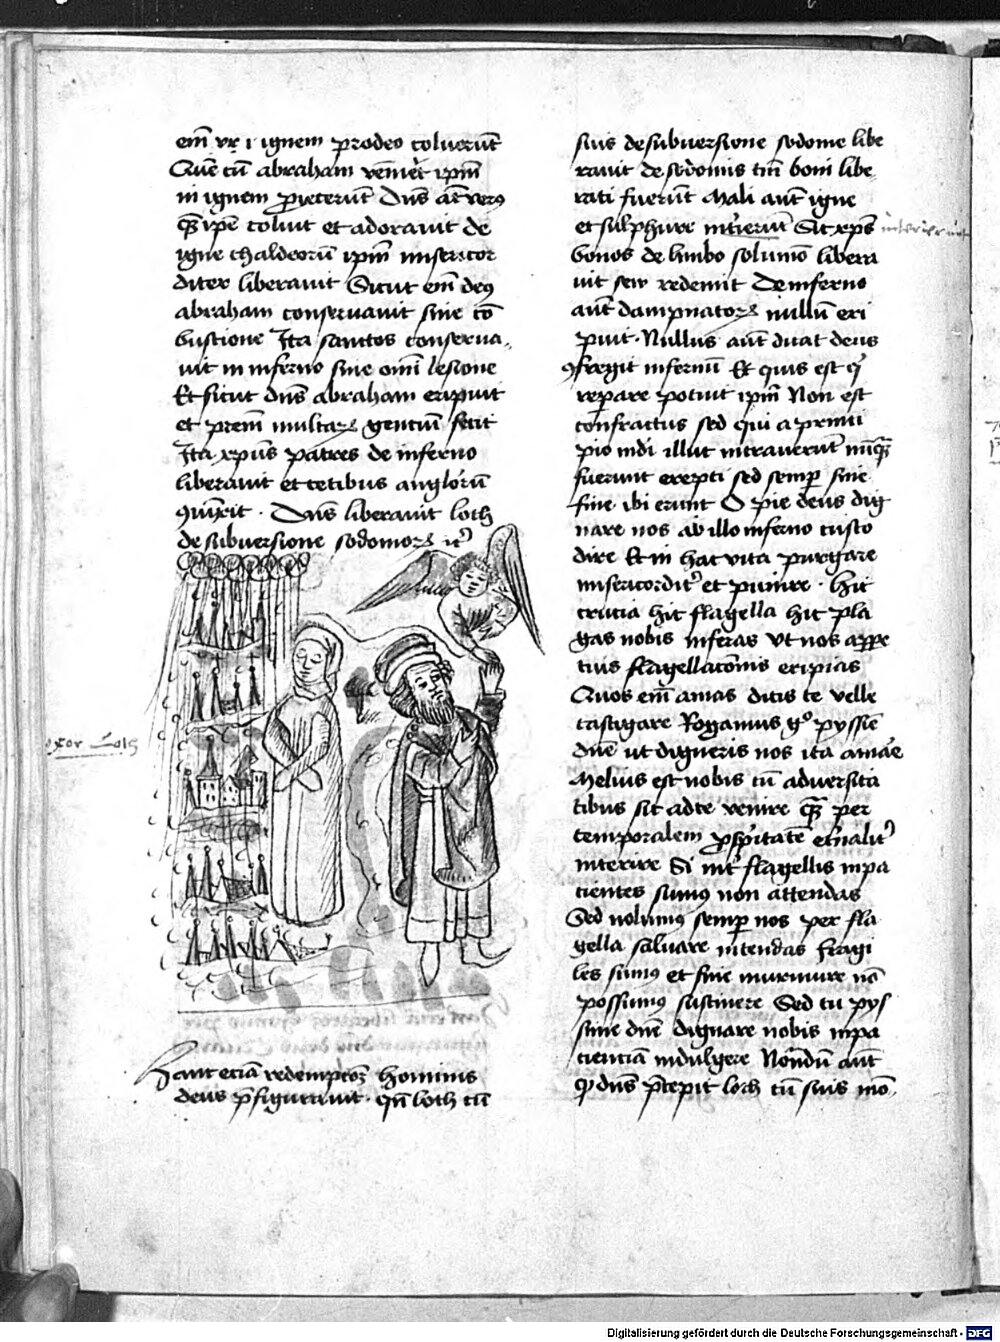 em̄ vr i ignem prodeo coluerūt
Quē cū abraham venīet ip̄m
in ignem ꝓiecerūt Dn̄s aūt verꝯ
quē ip̄e coluit et adorauit de
igne chaldeorū ip̄m misericor
diter liberauit Sicut em̄ deꝯ
abraham conseruauit sine cō
bustione Ita sanctos conserua
uit in inferno sine om̄i lesione
Et sicut dn̄s abraham eripuit
et pr̄em multaꝝ gencium fecit
Ita xp̄us patres de inferno
liberauit et cetibus anglorū
ꝯiūxit · Dn̄s liberauit loth
de subuersione sodomoꝝ
vxor Loth
Hanc eciā redempcōꝫ hominis
deus p̄figurauit · qn̄ loth cū
suis de subuersione sodome libe
rauit de sodomis tm̄ boni libe
rati fuerūt Mali aut̄ igne
et sulphure int̄ierūt Sic xp̄s
interierunt
bonos de limbo solūmō libera
uit seu redemit De inferno
aut̄ dampnatoꝝ nullū eri
puit · Nullus aut̄ dicat deus
ꝯfregit infernū Et quis est q̄
reparare potuit ip̄m Non est
confractus sed qui a princi
pio mdi illuc intrauerūt nūqꝫ
fuerunt erepti sed semp̄ sine
fine ibi erunt O pie deus dig
nare nos ab illo inferno custo
dire Et in hac vita purgare
misericordit̄ et punire · hic
crucia hic flagella hic pla
gas nobis inferas vt nos a ꝑpe
tuis flagellacōnis eripias
Quos em̄ amas dicis te velle
castigare Rogamus gͦ pyssiē
dn̄e ut digneris nos ita amāe
Melius est nobis cū aduersita
tibus sic ad te venire qꝫ per
temporalem ꝓsperitatē et̄nalit̄
interire Si int̄ flagellis inpa
cientes sumꝯ non attendas
Sed nolumꝯ semp̄ nos per fla
gella saluare intendas Fragi
les sumꝯ et sine murmure nō
possumꝯ sustinere Sed tu pys
sime dn̄e dignare nobis inpa
cienciā indulgere Nōndū aut̄
qꝫ dn̄s p̄cepit loth cū suis mō
Digitalisierung gefördert durch die Deutsche Forschungsgemeinschaft - DFG